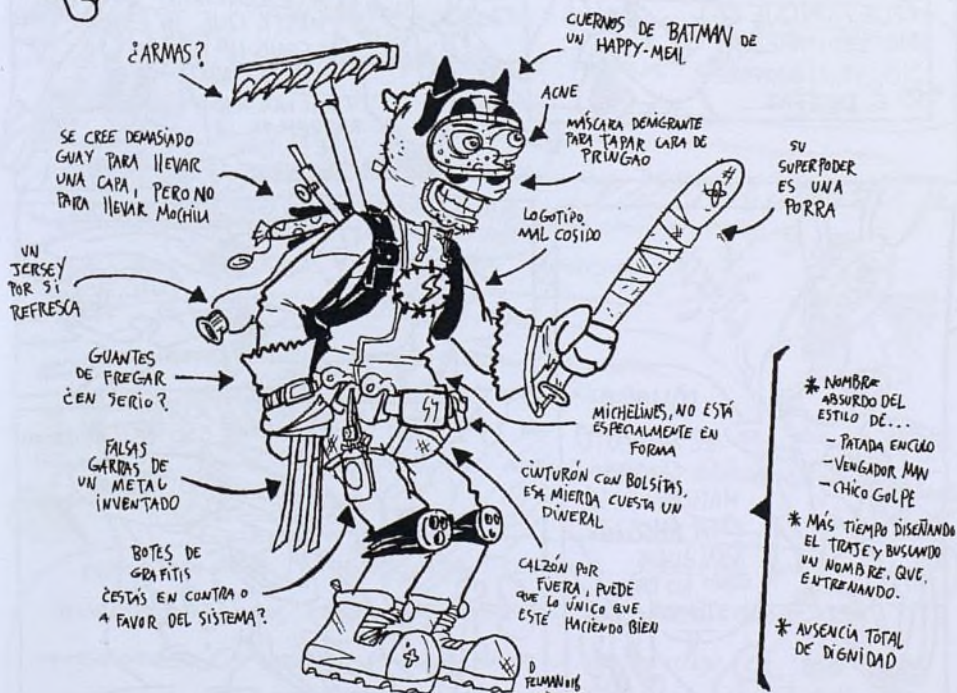 ¿ARMAS?
CUERNOS DE BATMAN DE
UN HAPPY-MEAL
ACNE
MÁSCARA DENIGRANTE
PARA TAPAR CARA DE
PRINGAO
SU
SUPERPODER
ES UNA
PORRA
SE CREE DEMASIADO
GUAY PARA LLEVAR
UNA CAPA, PERO NO
PARA LLEVAR MOCHILA
LOGOTIPO
MAL COSIDO
UN
JERSEY
POR SI
REFRESCA
GUANTES
DE FREGAR
¿EN SERIO?
MICHELINES, NO ESTÁ
ESPECIALMENTE EN
FORMA
FALSAS
GARRAS DE
UN METAL
INVENTADO
CINTURÓN CON BOLSITAS,
ESA MIERDA CUESTA UN
DINERAL
BOTES DE
GRAFITIS
¿ESTÁS EN CONTRA O
A FAVOR DEL SISTEMA?
CALZÓN POR
FUERA, PUEDE
QUE LO ÚNICO QUE
ESTÉ HACIENDO BIEN
* NOMBRE
ABSURDO DEL
ESTILO DE...
- PATADA ENCULO
- VENGADOR MAN
- CHICO GOLPE
* MÁS TIEMPO DISEÑANDO
EL TRAJE Y BUSCANDO
UN NOMBRE, QUE,
ENTRENANDO.
* AUSENCIA TOTAL
DE DIGNIDAD